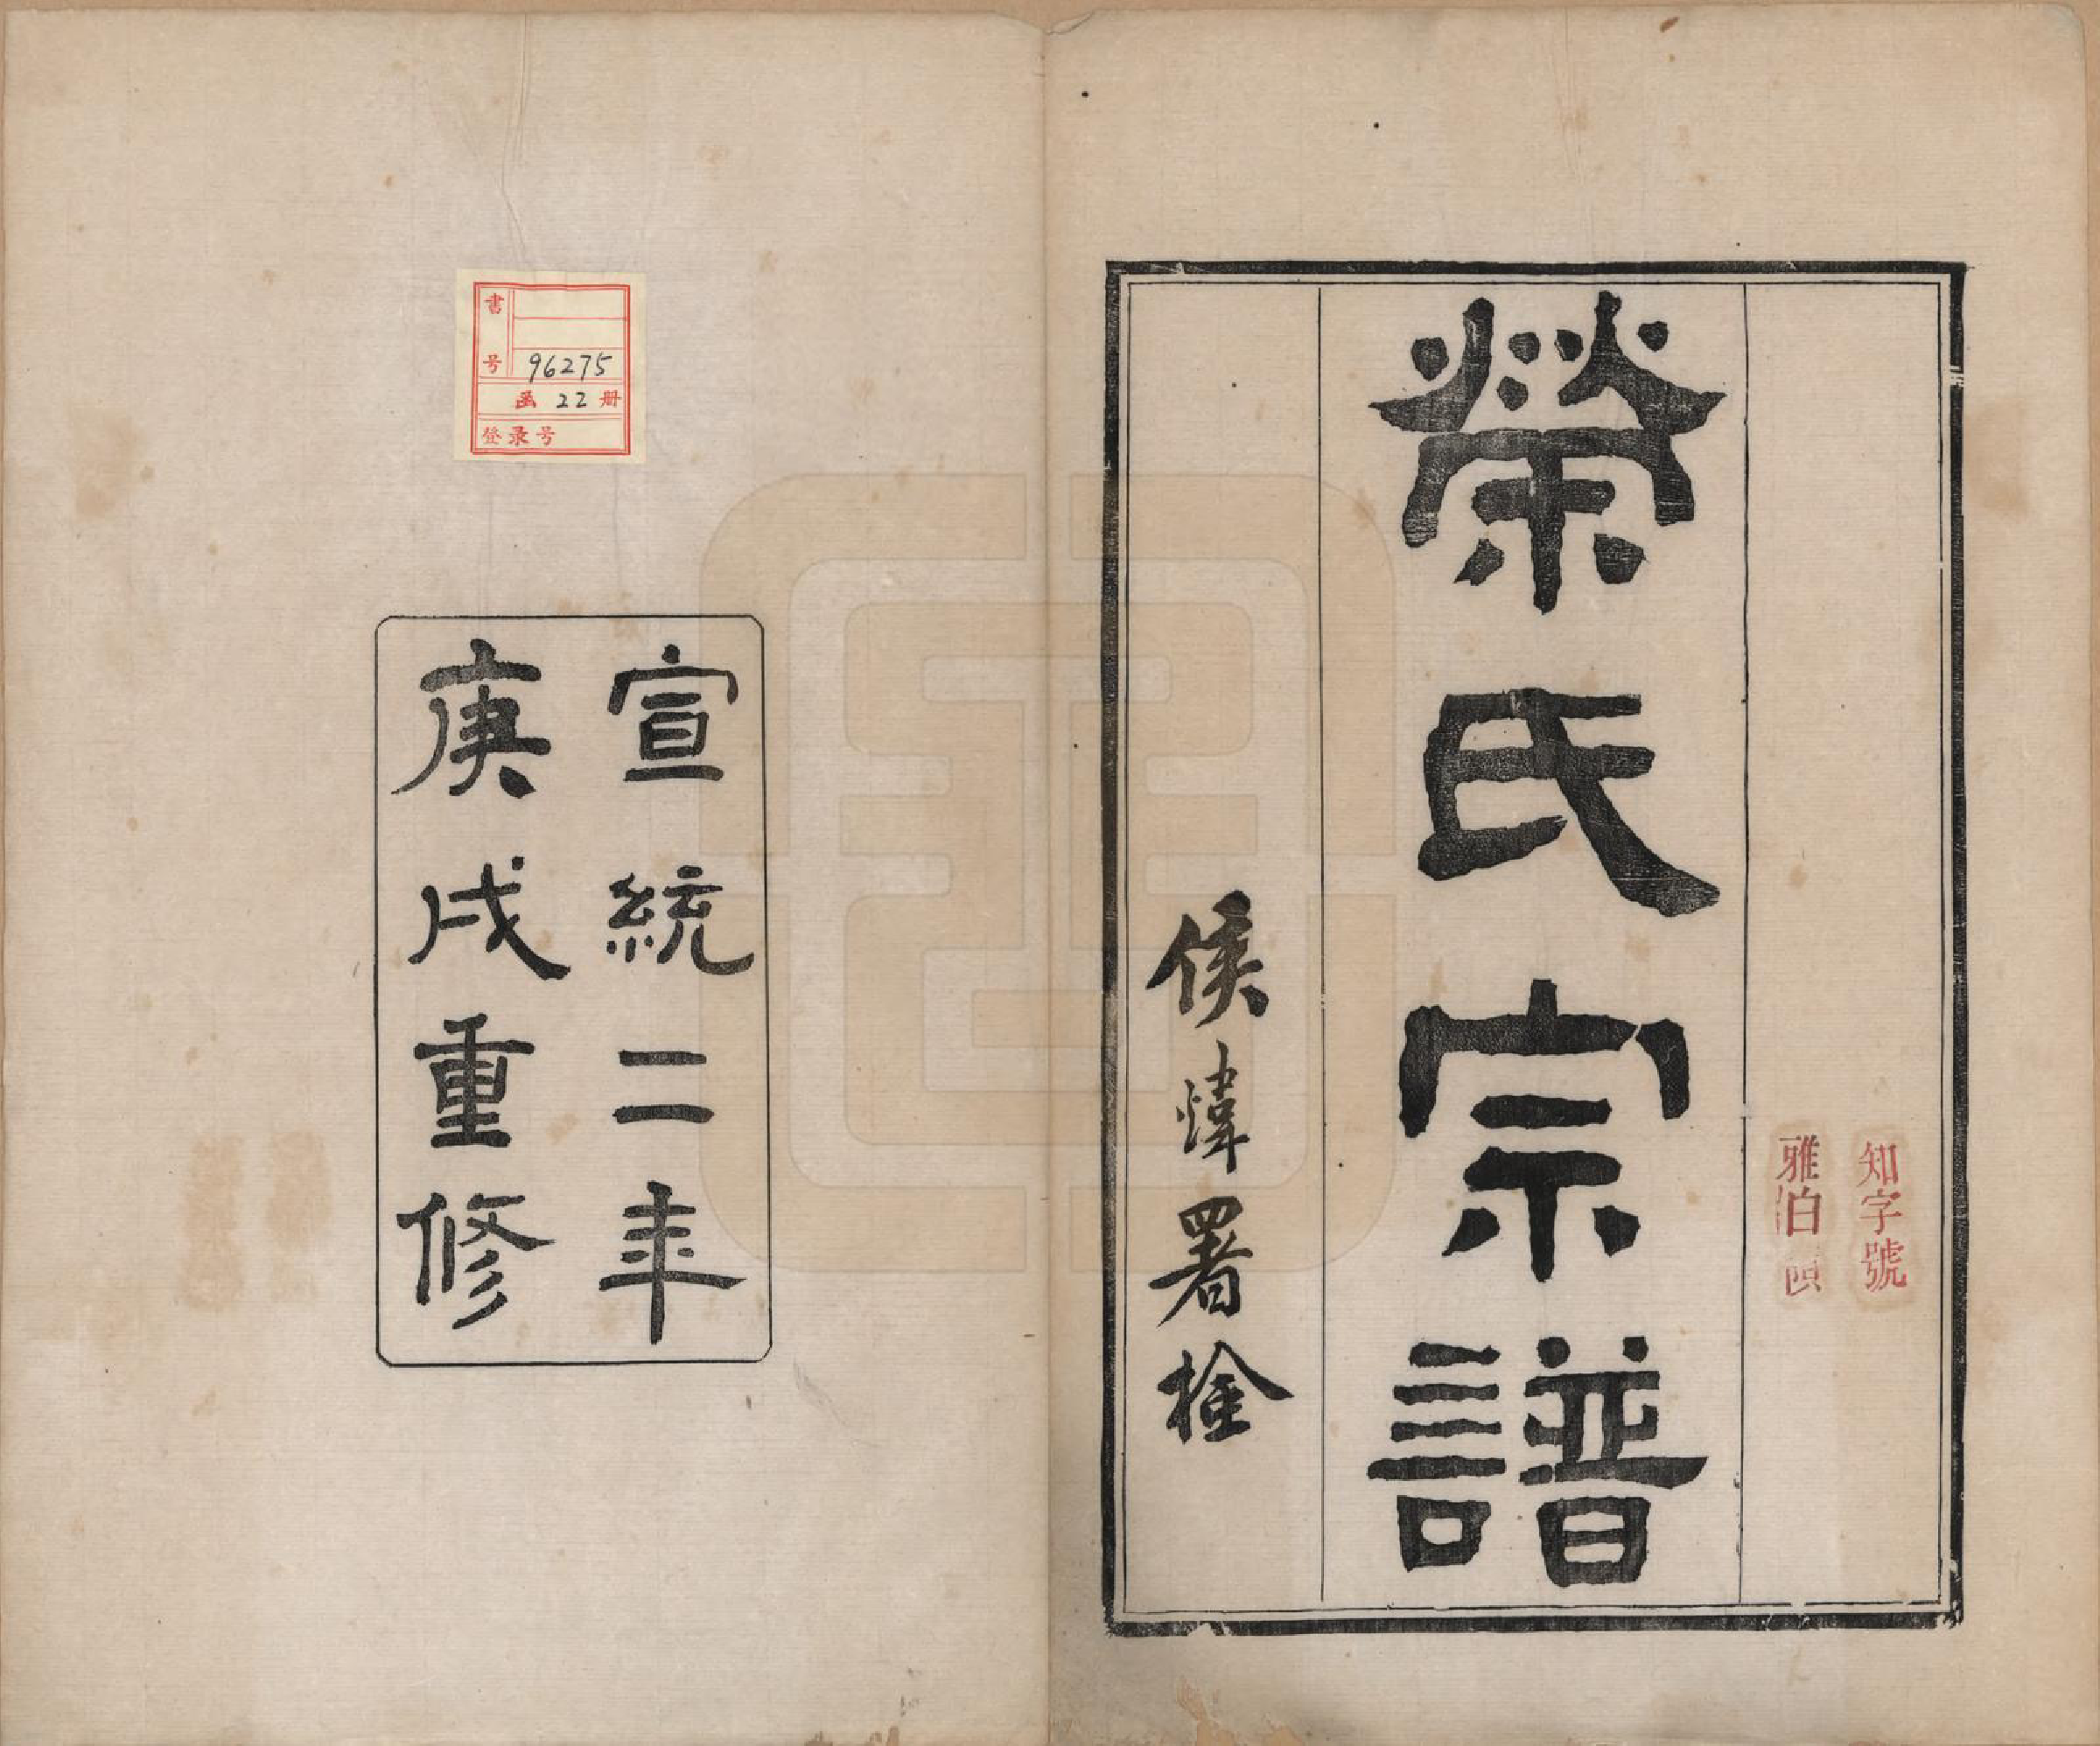 知字號
雅白
榮氏宗譜
侯煒署檢
宣統二年
庚戌重修
書号 96275
函 22 册
登录号